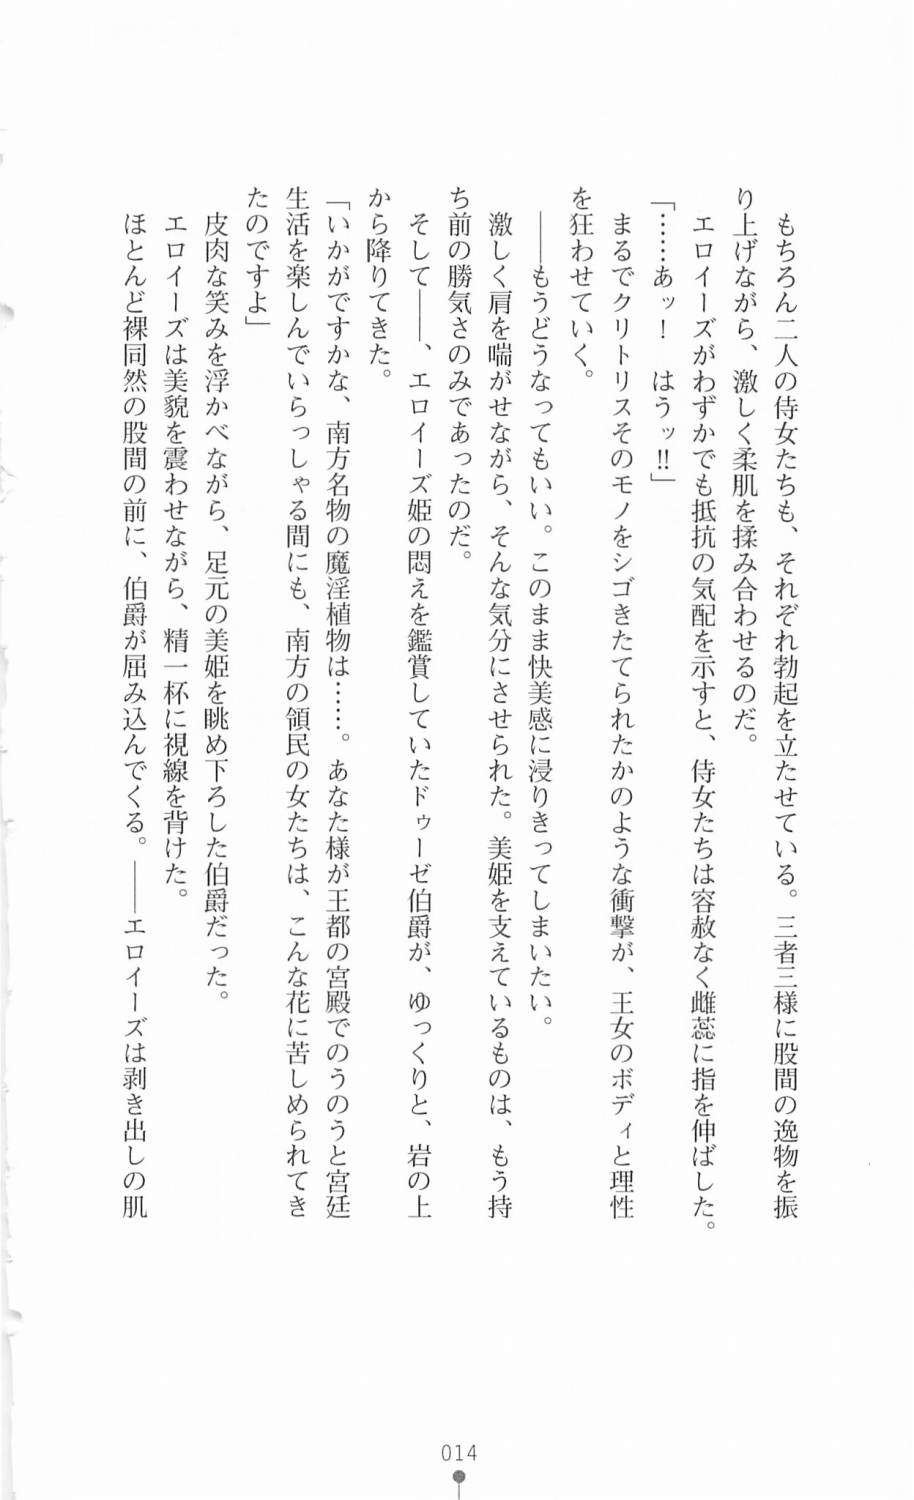 もちろん二人の侍女たちも、それぞれ勃起を立たせている。三者三様に股間の逸物を振
り上げながら、激しく柔肌を揉み合わせるのだ。
エロイーズがわずかでも抵抗の気配を示すと、侍女たちは容赦なく雌蕊に指を伸ばした。
「……あッ!　はうッ!!」
まるでクリトリスそのモノをシゴきたてられたかのような衝撃が、王女のボディと理性
を狂わせていく。
――もうどうなってもいい。このまま快美感に浸りきってしまいたい。
激しく肩を喘がせながら、そんな気分にさせられた。美姫を支えているものは、もう持
ち前の勝気さのみであったのだ。
そして――、エロイーズ姫の悶えを鑑賞していたドゥーゼ伯爵が、ゆっくりと、岩の上
から降りてきた。
「いかがですかな、南方名物の魔淫植物は……。あなた様が王都の宮殿でのうのうと宮廷
生活を楽しんでいらっしゃる間にも、南方の領民の女たちは、こんな花に苦しめられてき
たのですよ」
皮肉な笑みを浮かべながら、足元の美姫を眺め下ろした伯爵だった。
エロイーズは美貌を震わせながら、精一杯に視線を背けた。
ほとんど裸同然の股間の前に、伯爵が屈み込んでくる。――エロイーズは剥き出しの肌
014